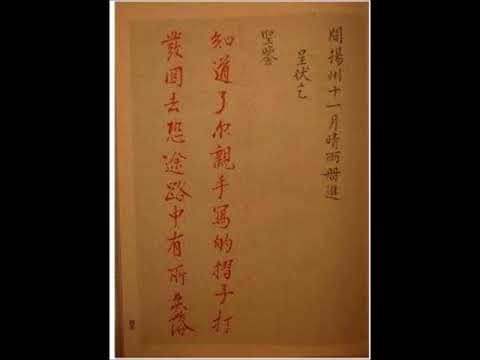 聞揚州十一月晴雨冊進
呈伏乞
聖鑒
知道了尔親手寫的摺子打
發回去恐途路中有所失落